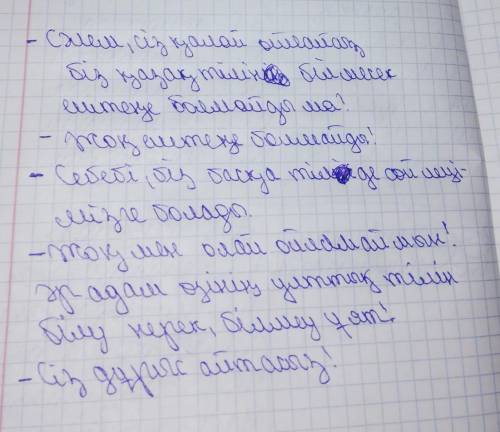 - Сәлем, сіз қалай ойлайсыз
біз қазақ тілін білмесек
ештеңе болмайды ма?
- Жоқ ештеңе болмайды!
- Себебі, біз басқа тілде сөйлеуі-
мізге болады.
- Жоқ мен олай ойламаймын!
Әр адам өзінің ұлттық тілін
білу керек, білмеу ұят!
- Сіз дұрыс айтасыз!